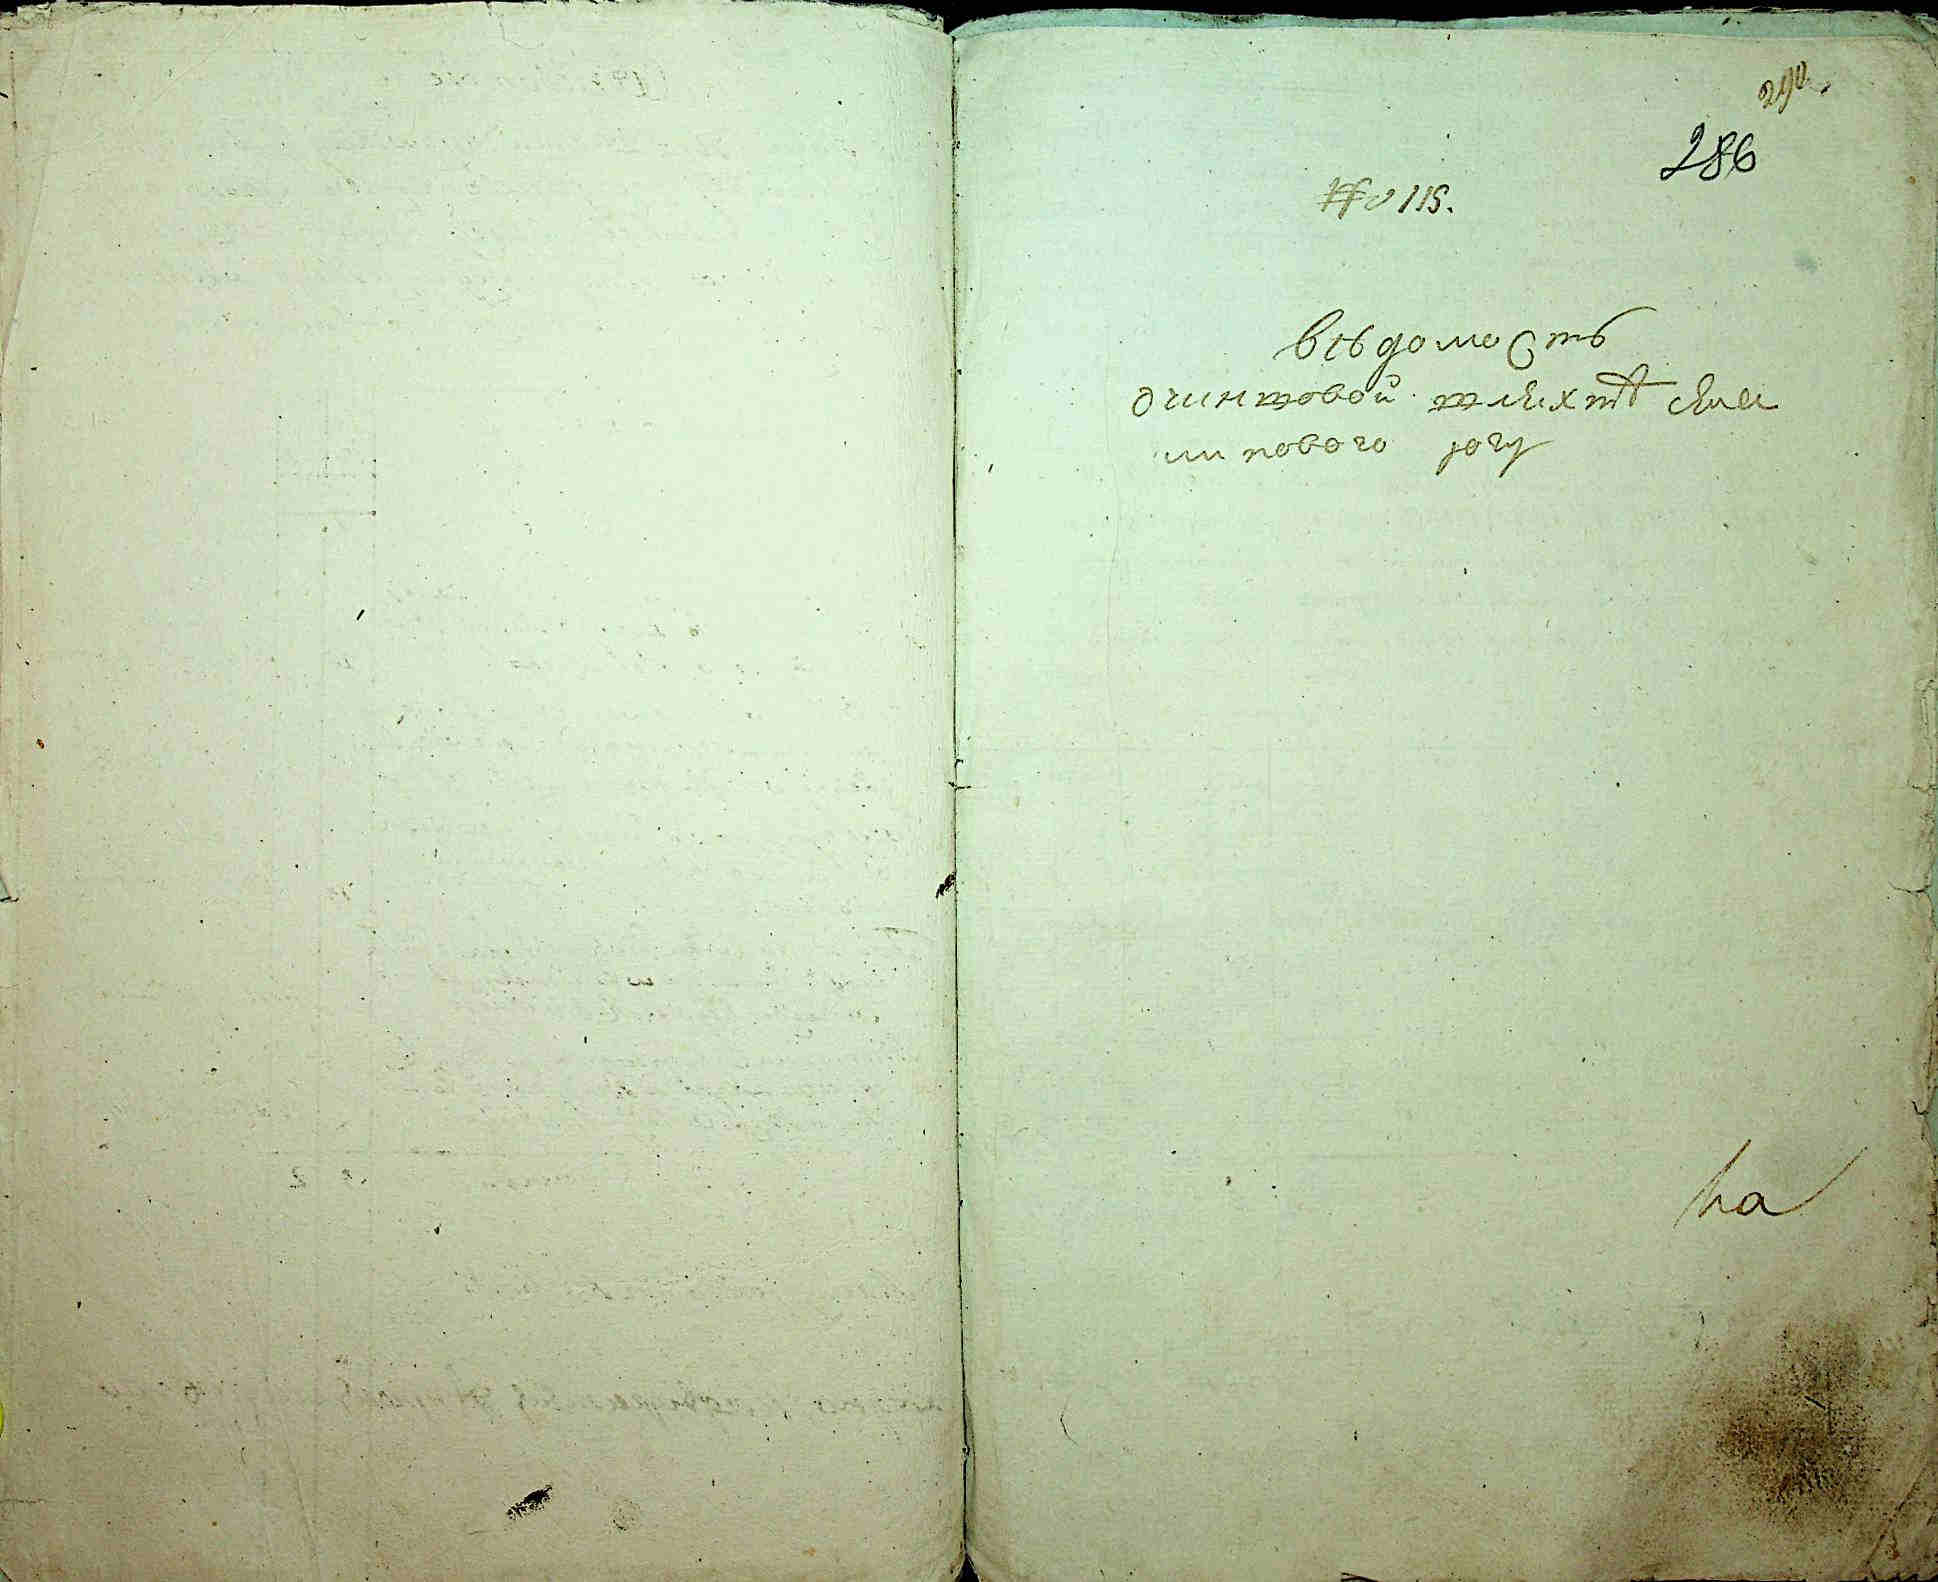 290
286
№ 115.
Вѣдомость
о чиншовой шляхтѣ села
Липового рогу
на